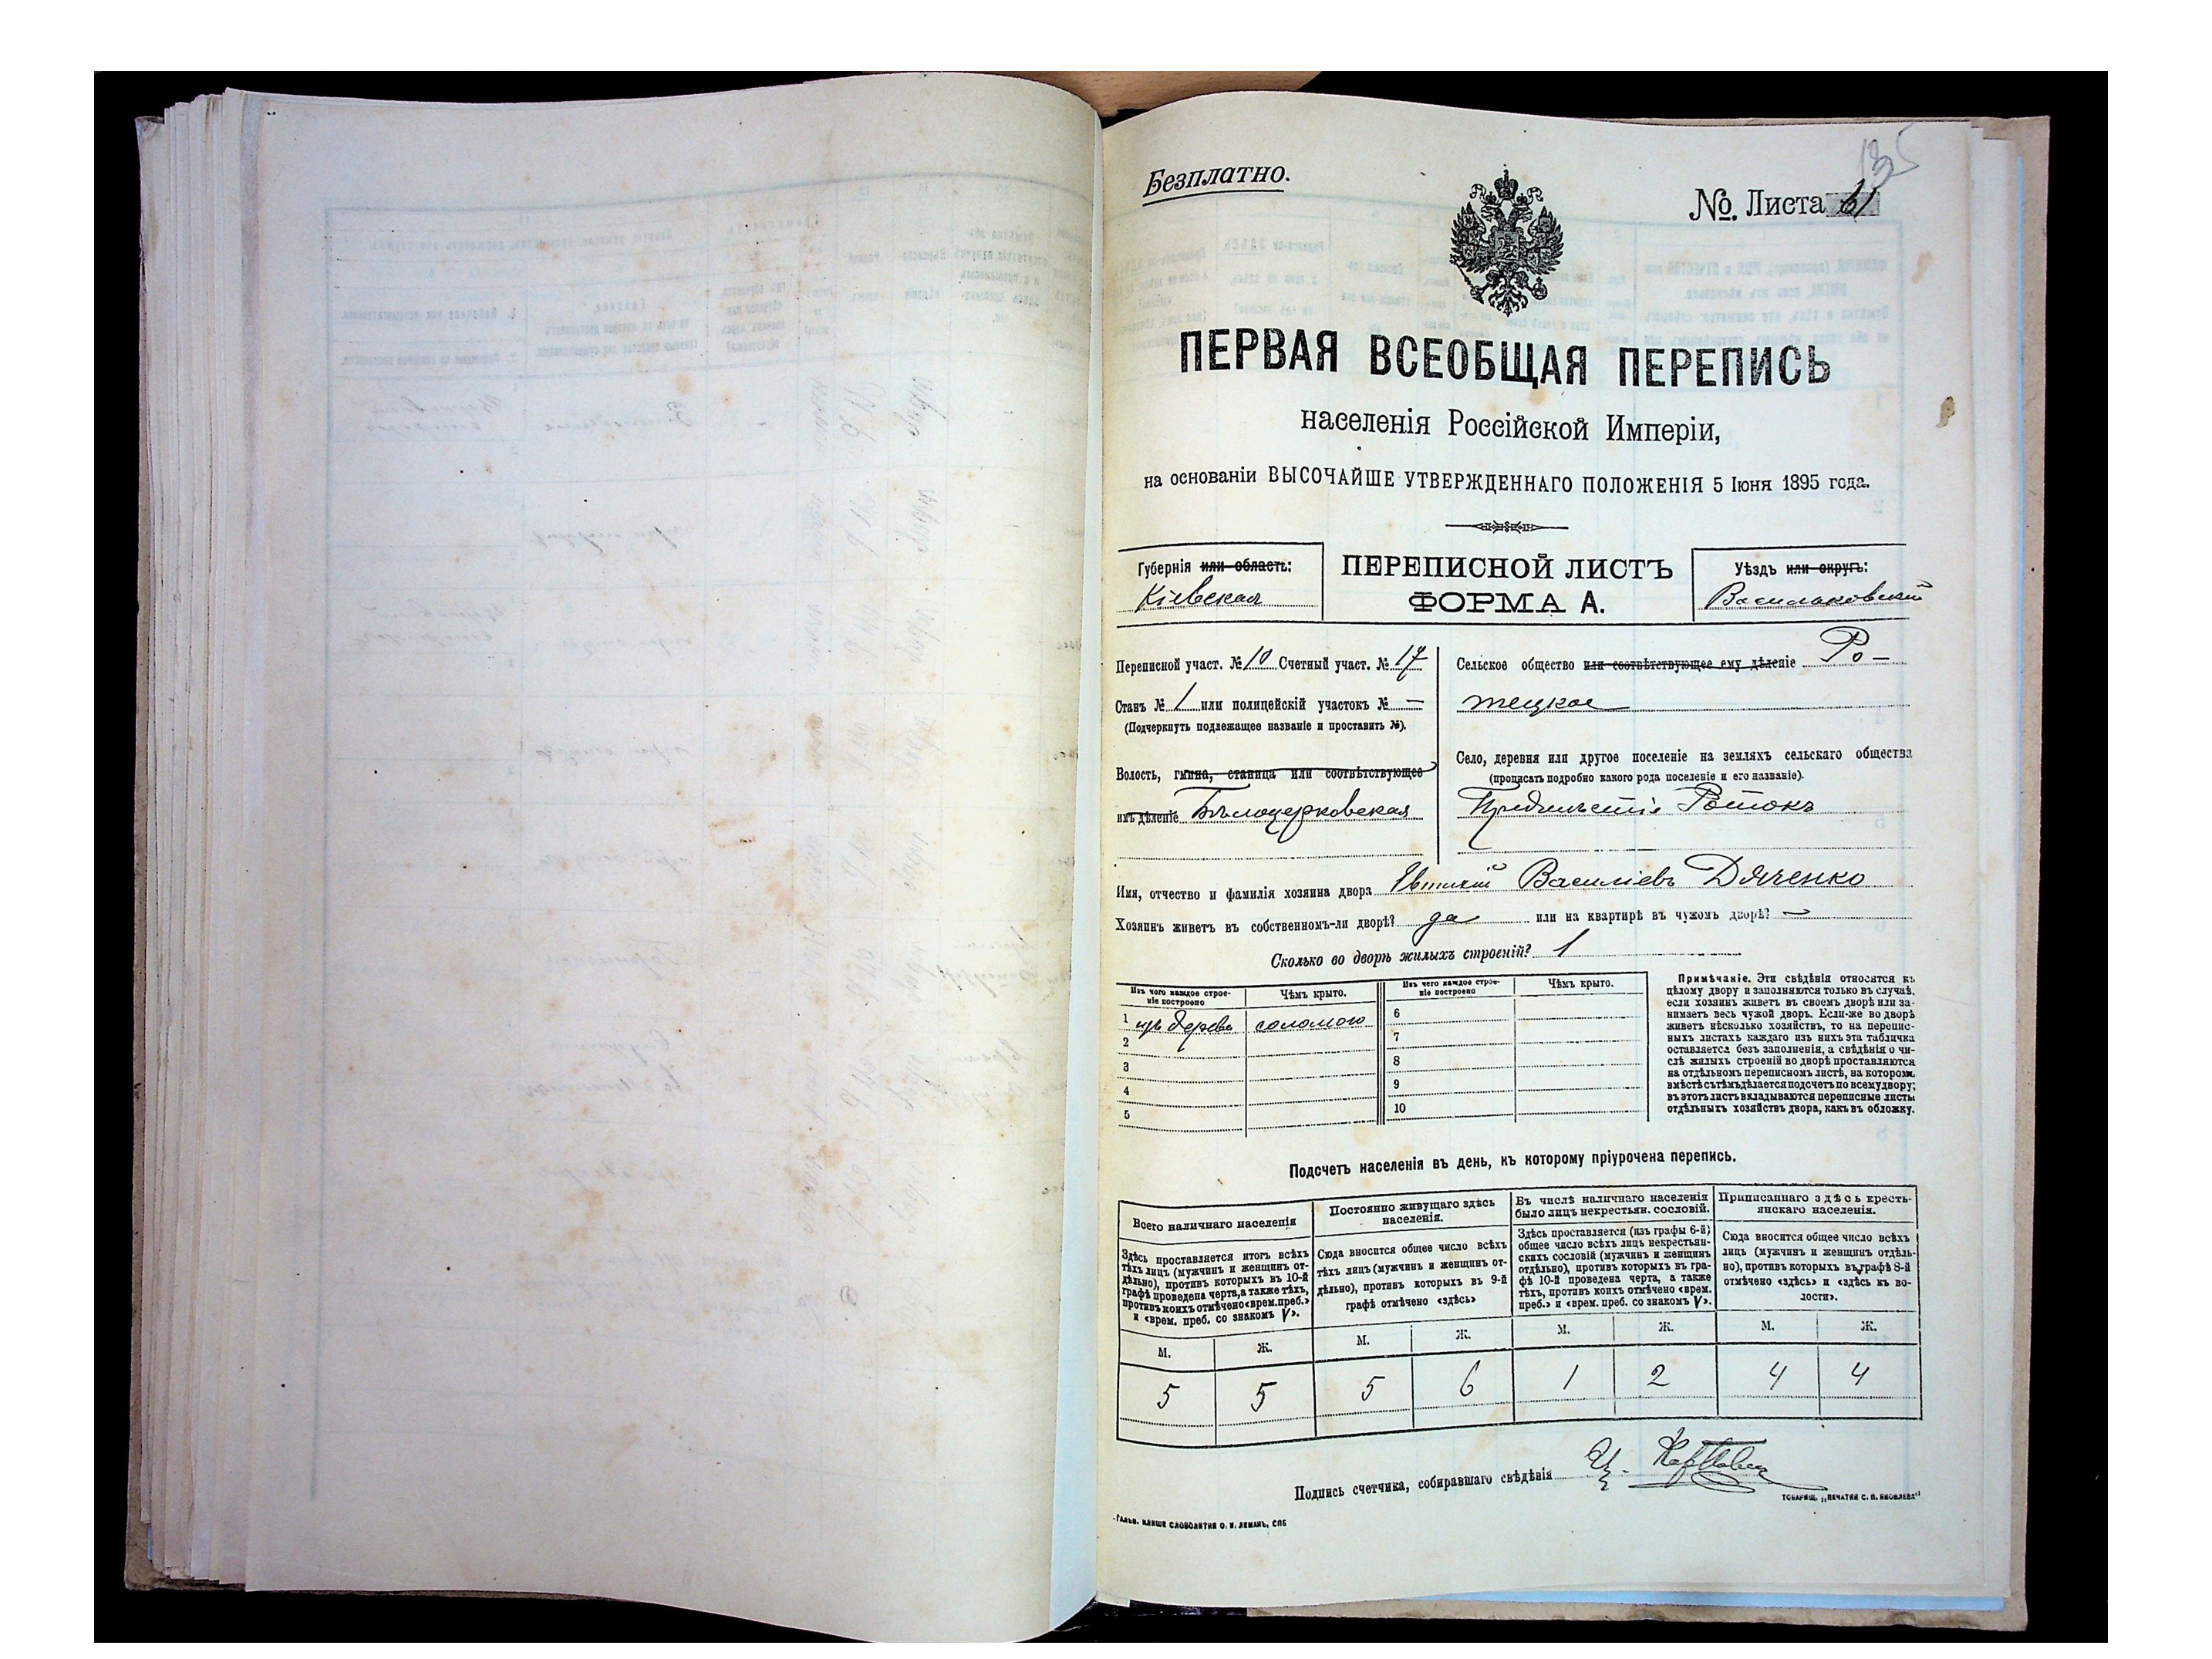 135
Безплатно.
№. Листа 61
ПЕРВАЯ ВСЕОБЩАЯ ПЕРЕПИСЬ
населенія Россійской Имперіи,
на основаніи ВЫСОЧАЙШЕ УТВЕРЖДЕННАГО ПОЛОЖЕНІЯ 5 Іюня 1895 года.
Губернія или область:
Кіевская
ПЕРЕПИСНОЙ ЛИСТЪ
ФОРМА А.
Уѣздъ или округъ:
Васильковскій
Переписной участ. № 10 Счетный участ. № 17
Станъ № 1 или полицейскій участокъ № —
(Подчеркнуть подлежащее названіе и проставить №).
Волость, гмина, станица или соотвѣтствующее
имъ дѣленіе Бѣлоцерковская
Сельское общество или соотвѣтствующее ему дѣленіе Ро-
тецкое
Село, деревня или другое поселеніе на земляхъ сельскаго общества
(прописать подробно какого рода поселеніе и его названіе).
Предмѣстіе Ротокъ
Имя, отчество и фамилія хозяина двора Василіевъ Дяченко
Хозяинъ живетъ въ собственномъ-ли дворѣ? да или на квартирѣ въ чужомъ дворѣ? —
Сколько во дворѣ жилыхъ строеній? 1
Изъ чего каждое строе-
ніе построено
Чѣмъ крыто.
Изъ чего каждое строе-
ніе построено
Чѣмъ крыто.
1 изъ дерева соломою
2
3
4
5
6
7
8
9
10
Примѣчаніе. Эти свѣдѣнія относятся къ
цѣлому двору и заполняются только въ случаѣ,
если хозяинъ живетъ въ своемъ дворѣ или за-
нимаетъ весь чужой дворъ. Если-же во дворѣ
живетъ нѣсколько хозяйствъ, то на перепис-
ныхъ листахъ каждаго изъ нихъ эта табличка
оставляется безъ заполненія, а свѣдѣнія о чи-
слѣ жилыхъ строеній во дворѣ проставляются
на отдѣльномъ переписномъ листѣ, на которомъ
вмѣстѣ съ тѣмъ дѣлается подсчетъ по всему двору;
въ этотъ листъ вкладываются переписные листы
отдѣльныхъ хозяйствъ двора, какъ въ обложку.
Подсчетъ населенія въ день, къ которому пріурочена перепись.
Всего наличнаго населенія
Здѣсь проставляется итогъ всѣхъ
тѣхъ лицъ (мужчинъ и женщинъ от-
дѣльно), противъ которыхъ въ 10-й
графѣ проведена черта, а также тѣхъ,
противъ коихъ отмѣчено «врем. преб.»
и «врем. преб. со знакомъ V».
Постоянно живущаго здѣсь
населенія.
Сюда вносится общее число всѣхъ
тѣхъ лицъ (мужчинъ и женщинъ от-
дѣльно), противъ которыхъ въ 9-й
графѣ отмѣчено «здѣсь»
Въ числѣ наличнаго населенія
было лицъ некрестьян. сословій.
Здѣсь проставляется (изъ графы 6-й)
общее число всѣхъ лицъ некрестьян-
скихъ сословій (мужчинъ и женщинъ
отдѣльно), противъ которыхъ въ гра-
фѣ 10-й проведена черта, а также
тѣхъ, противъ коихъ отмѣчено «врем.
преб.» и «врем. преб. со знакомъ V».
Приписаннаго здѣсь кресть-
янскаго населенія.
Сюда вносится общее число всѣхъ
лицъ (мужчинъ и женщинъ отдѣль-
но), противъ которыхъ въ графѣ 8-й
отмѣчено «здѣсь» и «здѣсь къ во-
лости».
М. Ж. М. Ж. М. Ж. М. Ж.
5 5 5 6 1 2 4 4
Подпись счетчика, собиравшаго свѣдѣнія
ТОВАРИЩ. „ПЕЧАТНЯ С. П. ЯКОВЛЕВА"
ГАЛЬВ. КЛИШЕ СЛОВОЛИТНИ О. И. ЛЕМАНЪ, СПБ